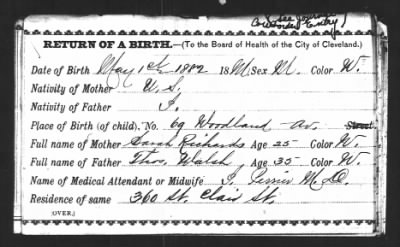 See Journal
Entry)
RETURN OF A BIRTH.—(To the Board of Health of the City of Cleveland.)
Date of Birth May 1st, 1882 18 M Sex M. Color W.
Nativity of Mother U. S.
Nativity of Father
Place of Birth (of child), No. 69 Woodland Av. Street.
Full name of Mother Sarah Richards Age 25 Color W.
Full name of Father Thos. Walsh, Age 35 Color W.
Name of Medical Attendant or Midwife M. D.
Residence of same 360 St. Clair St.
(OVER.)